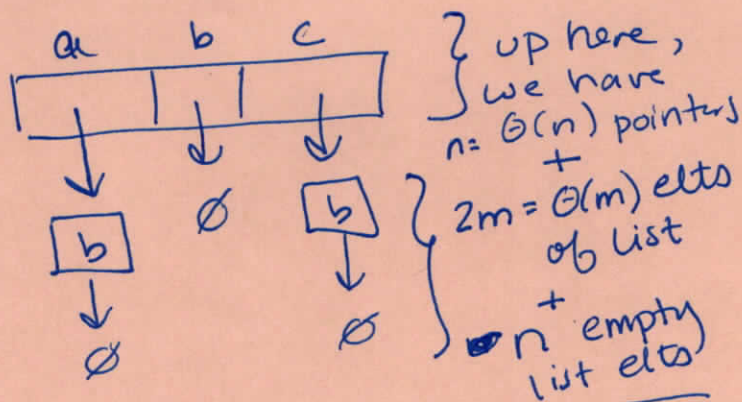 a b c
up here,
we have
n = Θ(n) pointers
+
b ∅ b
2m = Θ(m) elts
of list
+
∅ ∅
n empty
list elts